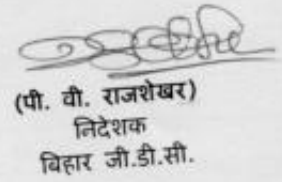 (पी. वी. राजशेखर)
निदेशक
बिहार जी.डी.सी.